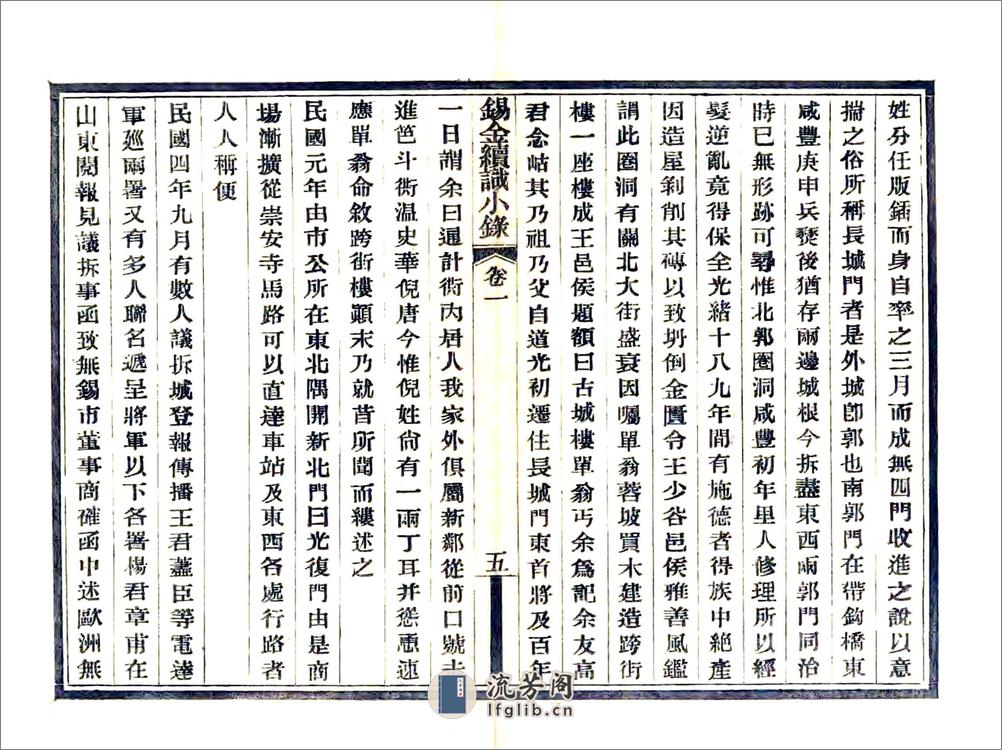 姓分任版鍤而身自率之三月而成無四門收進之說以意
揣之俗所稱長城門者是外城卽郭也南郭門在帶鈎橋東
咸豐庚申兵燹後猶存兩邊城根今拆盡東西兩郭門同治
時已無形跡可尋惟北郭圈洞咸豐初年里人修理所以經
髮逆亂竟得保全光緒十八九年間有施德者得族中絕產
因造屋剝削其磚以致坍倒金匱令王少谷邑侯雅善風鑑
謂此圈洞有關北大街盛衰因囑單翁蓉坡買木建造跨街
樓一座樓成王邑侯題額曰古城樓單翁丐余爲記余友高
君念岵其乃祖乃父自道光初遷住長城門東首將及百年
錫金續識小錄
卷一
五
一日謂余曰通計街內居人我家外俱屬新鄰從前口號士
進笆斗街温史華倪唐今惟倪姓尙有一兩丁耳并慫恿速
應單翁命敘跨街樓顚末乃就昔所聞而縷述之
民國元年由市公所在東北隅開新北門曰光復門由是商
場漸擴從崇安寺馬路可以直達車站及東西各處行路者
人人稱便
民國四年九月有數人議拆城登報傳播王君藎臣等電達
軍巡兩署又有多人聯名遞呈將軍以下各署楊君章甫在
山東閱報見議拆事函致無錫市董事商確函中述歐洲無
流芳阁
lfglib.cn